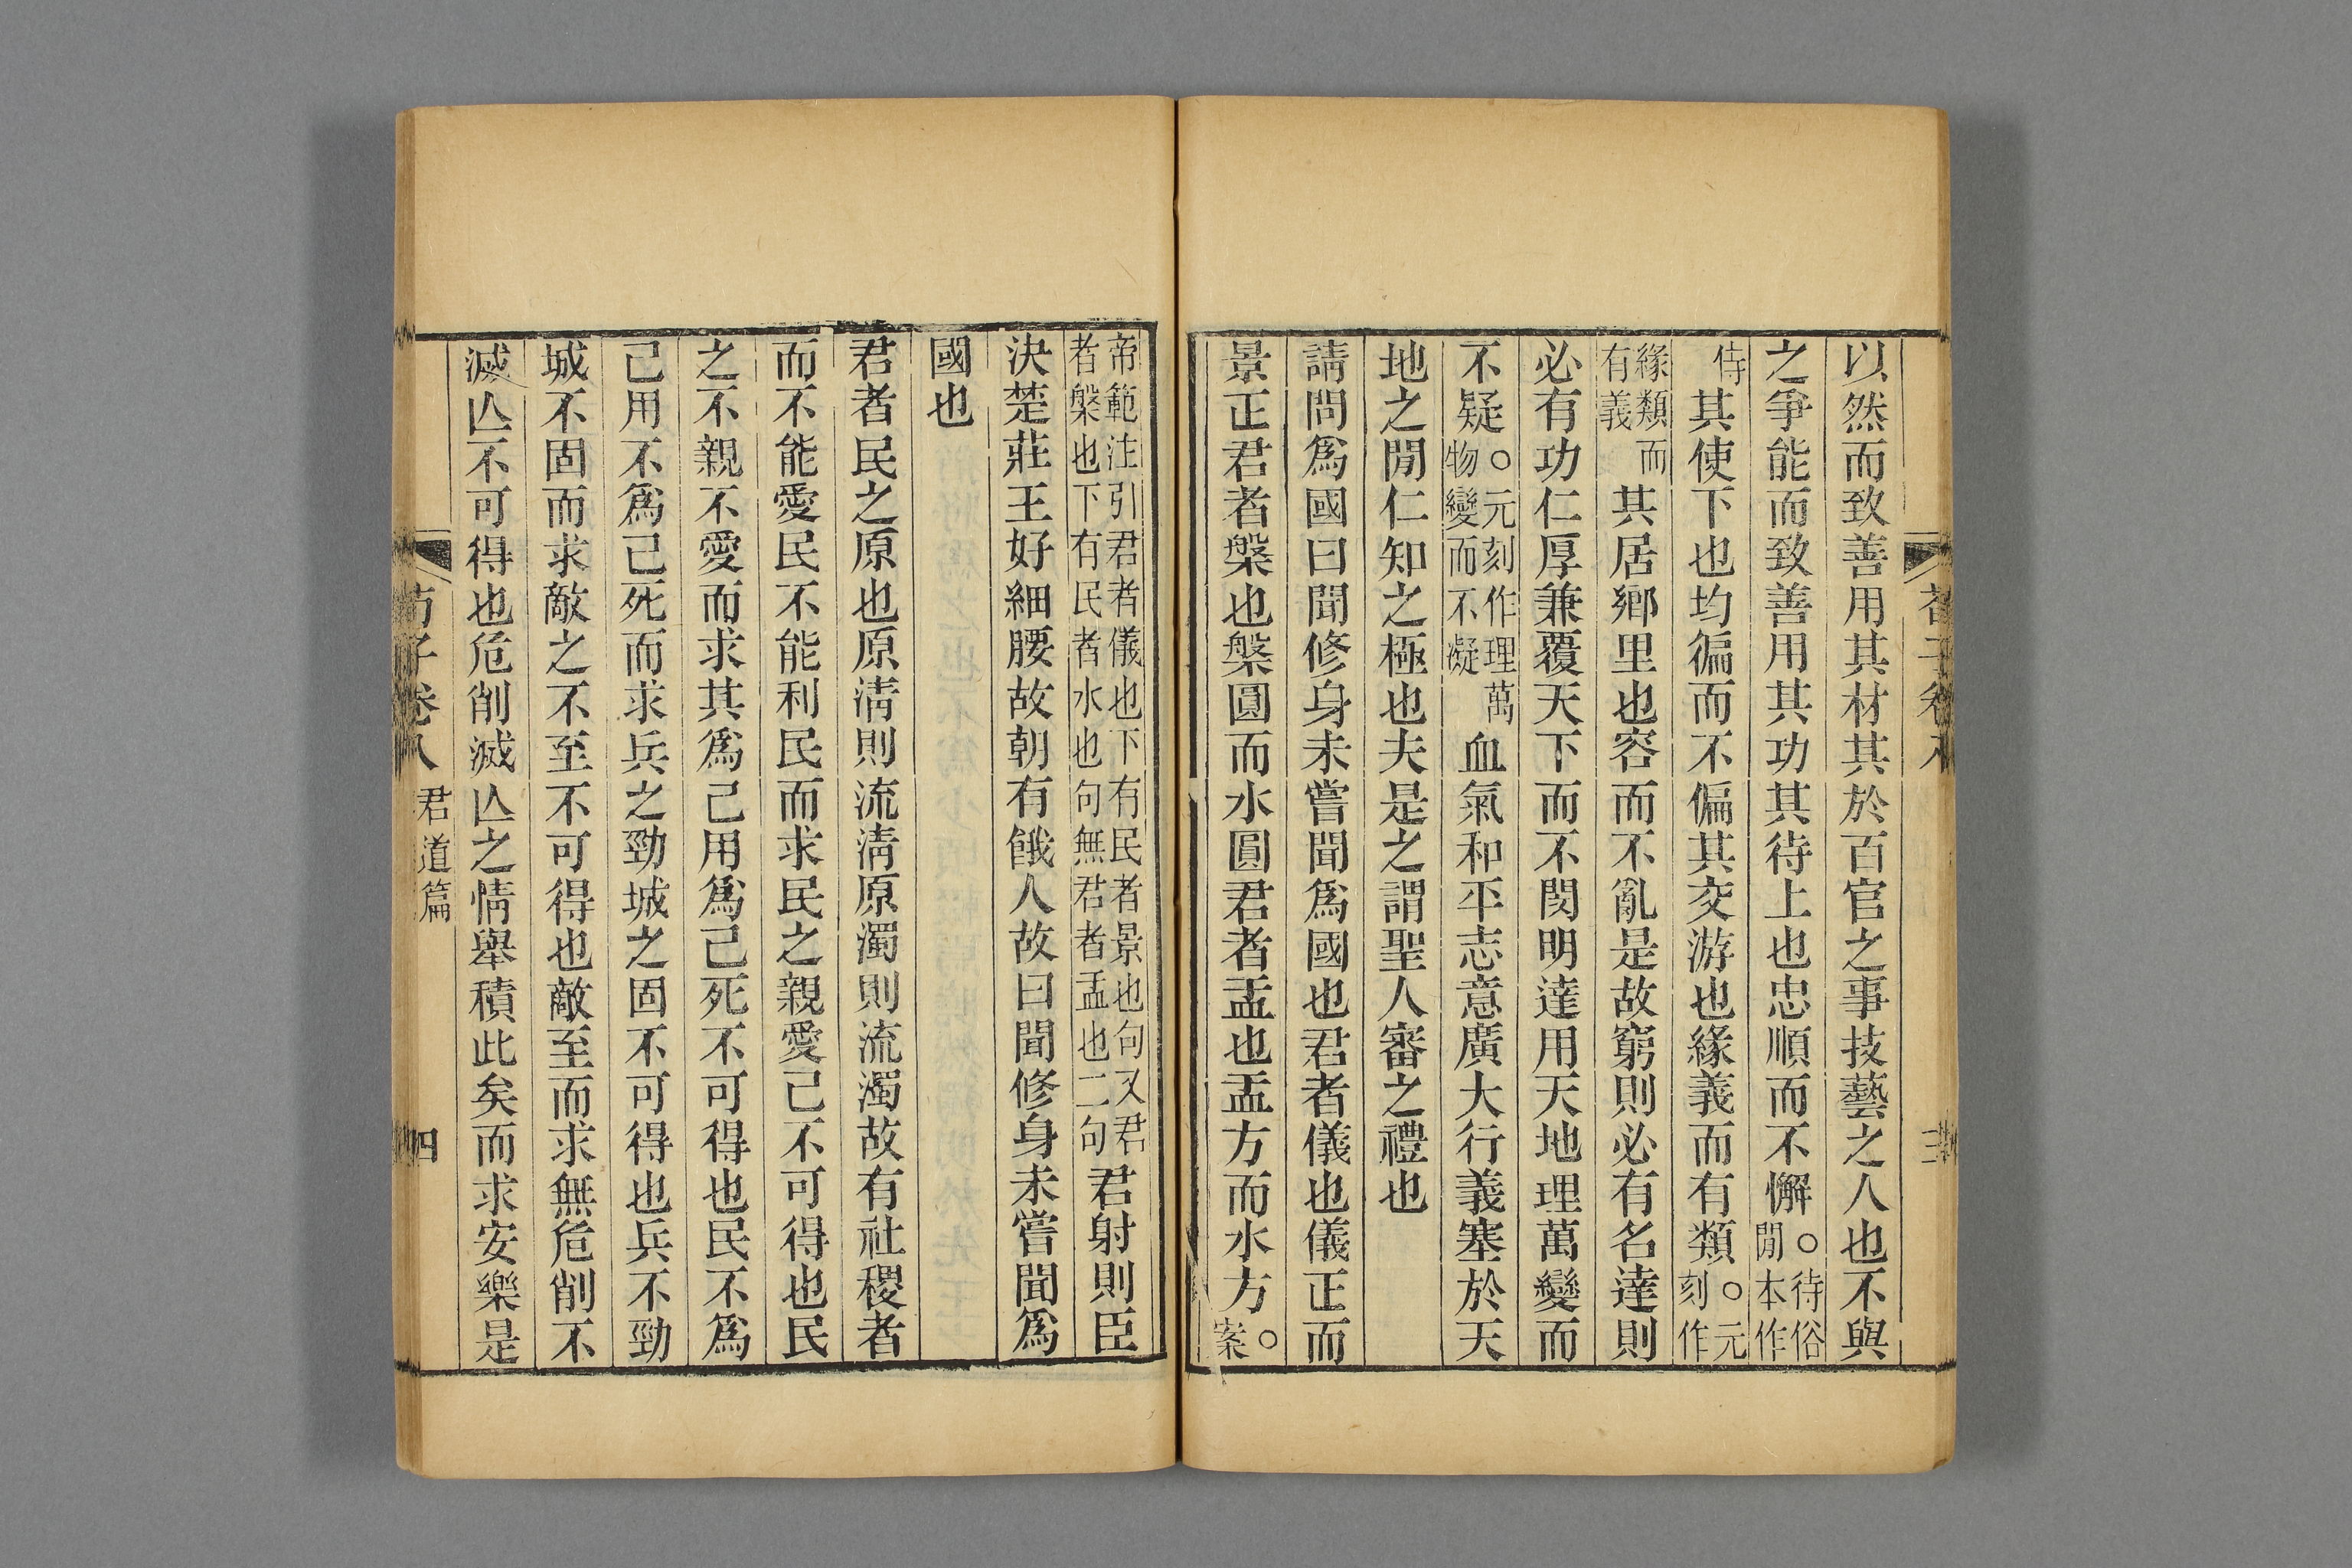 荀子卷八
三
以然而致善用其材其於百官之事技藝之人也不與
之爭能而致善用其功其待上也忠順而不懈○待俗閒本作
侍其使下也均徧而不偏其交游也緣義而有類○元刻作
緣類而有義其居鄉里也容而不亂是故窮則必有名達則
必有功仁厚兼覆天下而不閔明達用天地理萬變而
不疑○元刻作理萬物變而不凝血氣和平志意廣大行義塞於天
地之閒仁知之極也夫是之謂聖人審之禮也
請問爲國曰聞修身未嘗聞爲國也君者儀也儀正而
景正君者槃也槃圓而水圓君者盂也盂方而水方○案
帝範注引君者儀也下有民者景也句又君者槃也下有民者水也句無君者盂也二句君射則臣
決楚莊王好細腰故朝有餓人故曰聞修身未嘗聞爲
國也
君者民之原也原淸則流淸原濁則流濁故有社稷者
而不能愛民不能利民而求民之親愛己不可得也民
之不親不愛而求其爲己用爲己死不可得也民不爲
己用不爲己死而求兵之勁城之固不可得也兵不勁
城不固而求敵之不至不可得也敵至而求無危削不
滅亾不可得也危削滅亾之情舉積此矣而求安樂是
荀子卷八 君道篇
四